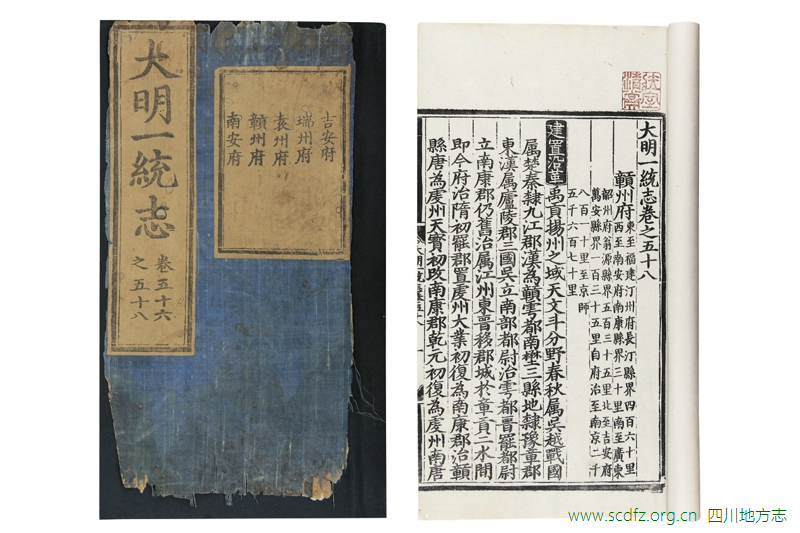 大明一統志
卷五十六
之五十八
吉安府
瑞州府
袁州府
贛州府
南安府
大明一統志卷之五十八
贛州府
東至福建汀州府長汀縣界四百六十里
西至南安府南康縣界三十里南至廣東
韶州府翁源縣界五百三十五里北至吉安府
萬安縣界一百三十五里自府治至南京二千
八百一十里至京師
五千六百七十里
建置沿革禹貢揚州之域天文斗分野春秋属吳越戰國
属楚秦隸九江郡漢為贛雩都南壄三縣地隸豫章郡
東漢属廬陵郡三國吳立南部都尉治雩都晉罷都尉
立南康郡仍舊治属江州東晉移郡城於章貢二水間
即今府治隋初罷郡置虔州大業初復為南康郡治贛
縣唐為虔州天寶初改南康郡乾元初復為虔州南唐
www.scdfz.org.cn 四川地方志